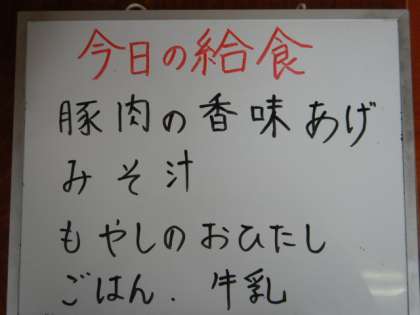 今日の給食
豚肉の香味あげ
みそ汁
もやしのおひたし
ごはん. 牛乳